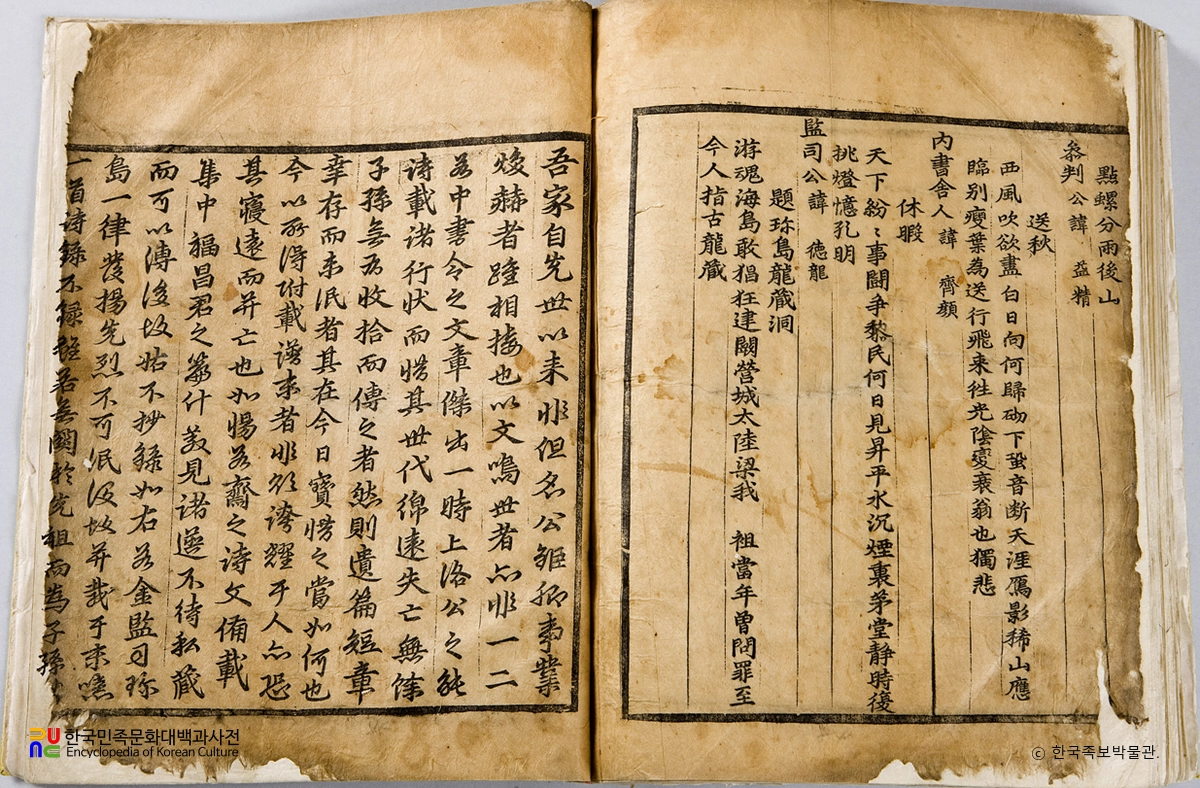 點螺分雨後山
叅判公諱 益精
送秋
西風吹欲盡白日向何歸砌下蛩音断天涯鴈影稀山應
臨别瘦葉為送行飛来徃光陰變衰翁也獨悲
内書舍人諱 齊顔
休暇
天下紛〻事闘爭黎民何日見昇平水沉煙裏苐堂静時復
挑燈憶孔明
監司公諱 德龍
題珎島龍藏洞
游魂海島敢猖狂建闕營城太陸梁我 祖當年曽問罪至
今人指古龍藏
吾家自先世以来非但名公雖卿事業
焌赫者踵相接也以文鳴世者亦非一二
若中書令之文章傑出一時上洛公之能
诗載諸行状而惜其世代綿遠失亡無馀
子孫無為收拾而傳之者然則遺篇短章
幸存而未泯者其在今日寶愣之當如何也
今以所淂附載譜末者非欲誇耀于人亦恐
其寢遠而并亡也如惕若齋之诗文俻載
集中福昌君之篇什羙見诸選不待私藏
而可以溥後故姑不抄錄如右若金監司珎
島一律發揚先烈不可泯没故并载于末噫
一首诗錄不錄雖若無關於先祖而為子孫
한국민족문화대백과사전
Encyclopedia of Korean Culture
ⓒ 한국족보박물관.